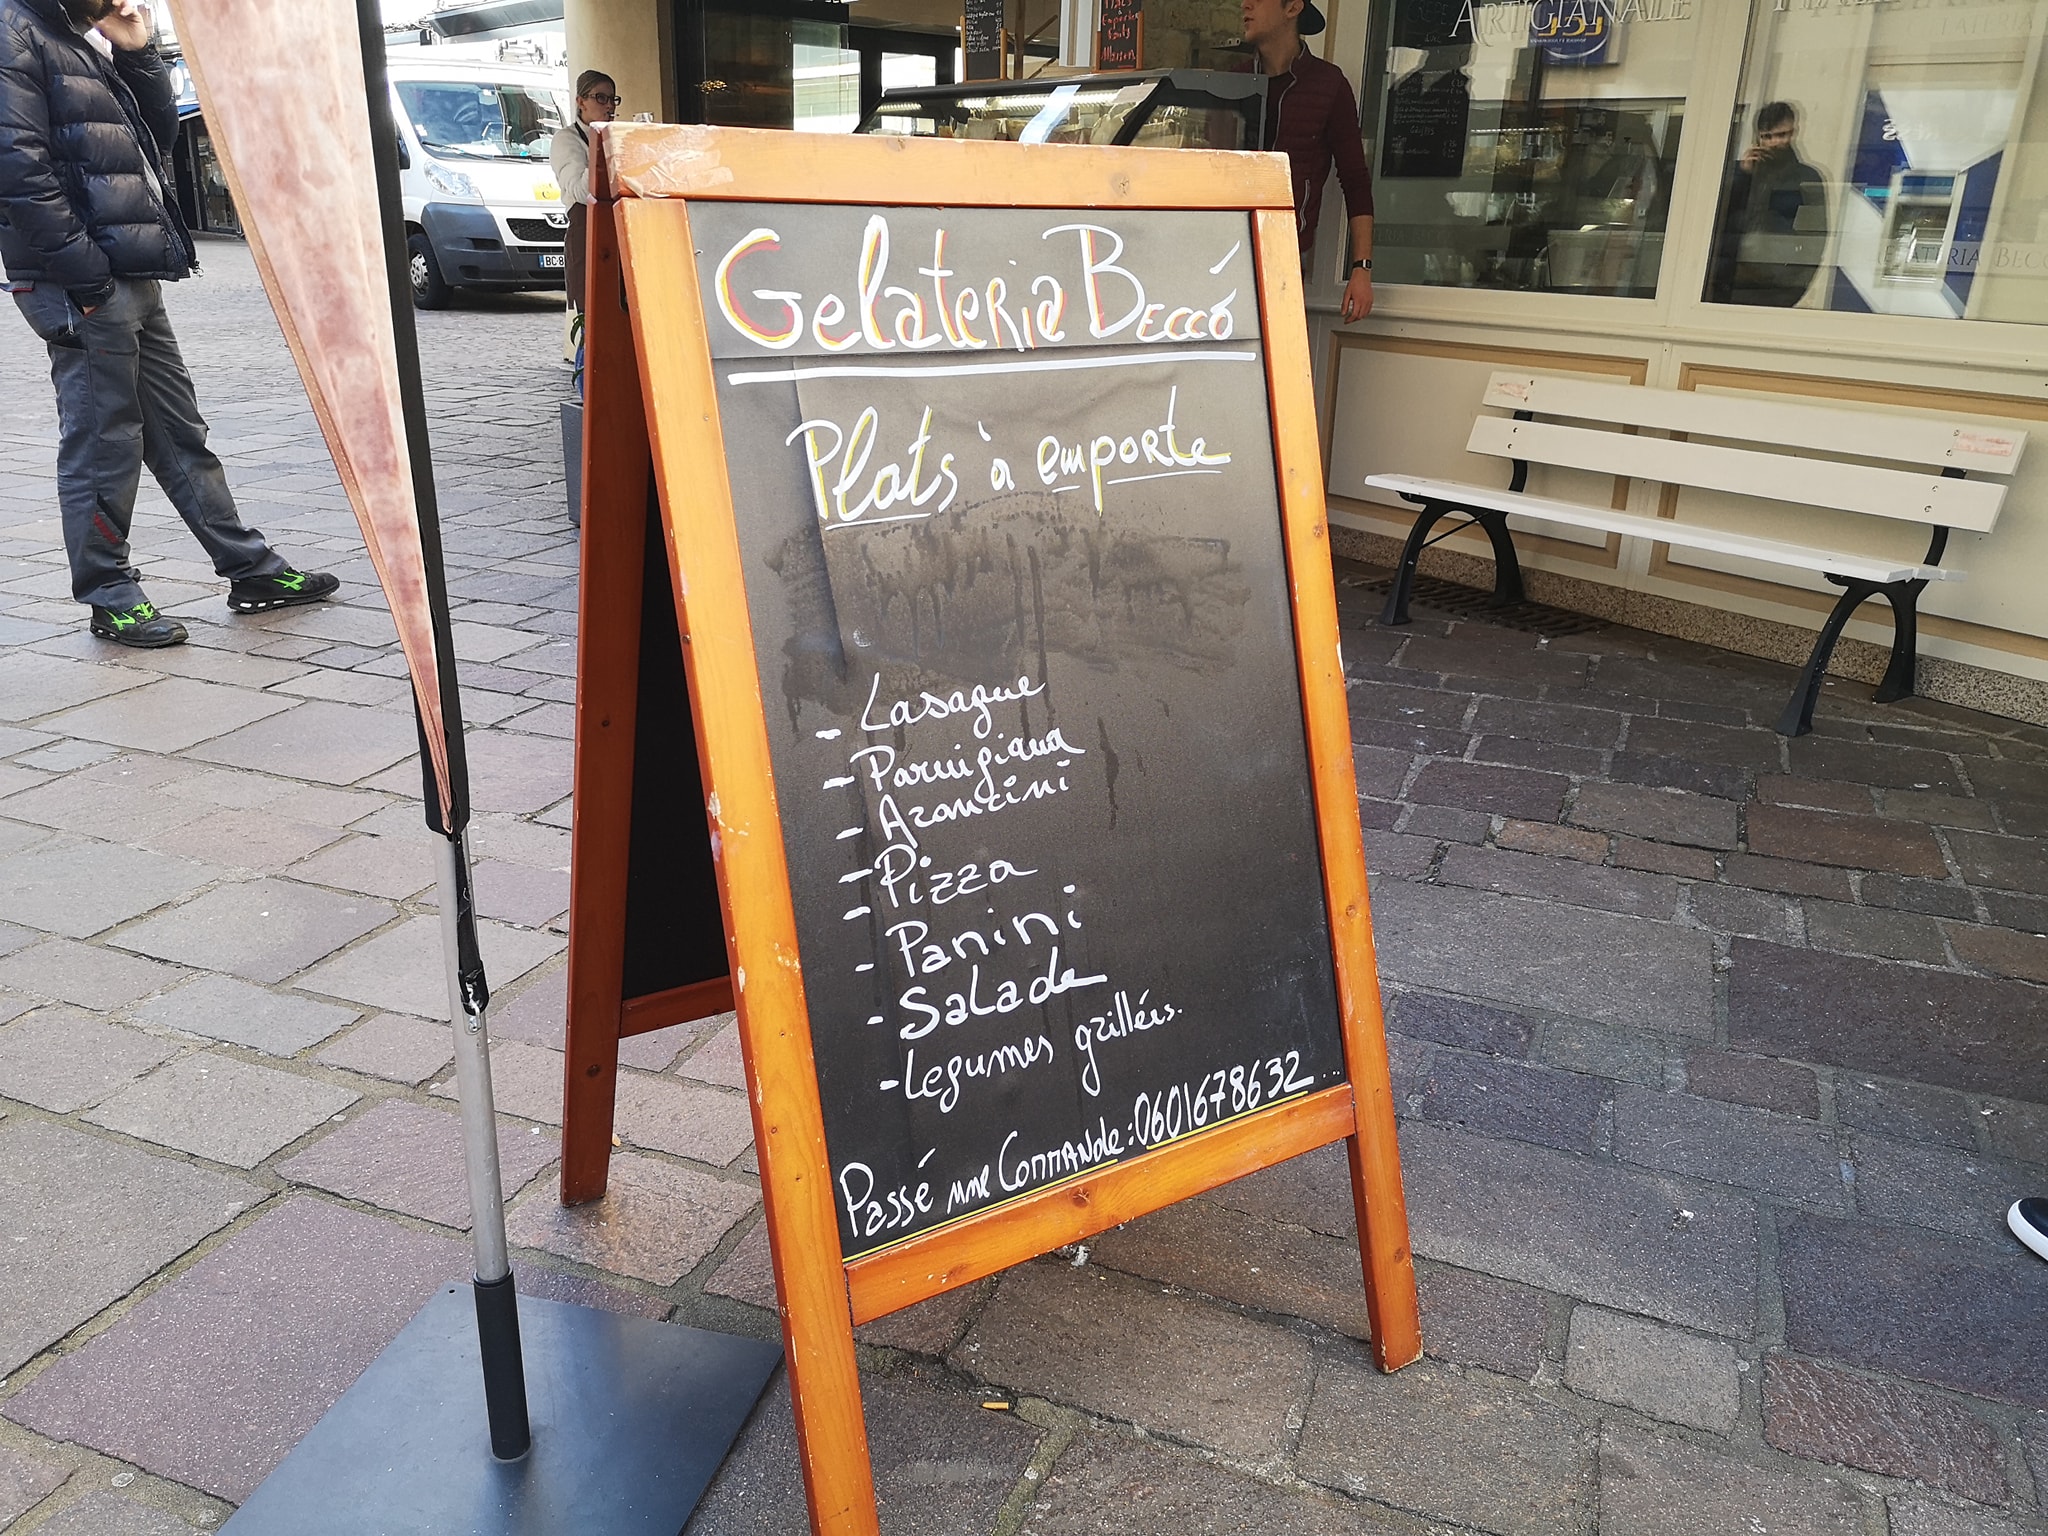 ARTIGIANALE
Gelateria Beccó
Plats à emporte
- Lasagne
- Parmigiana
- Arancini
- Pizza
- Panini
- Salade
- Legumes grillés.
Passé une Commande : 0601678632...
GELATERIA BECC
BC-8